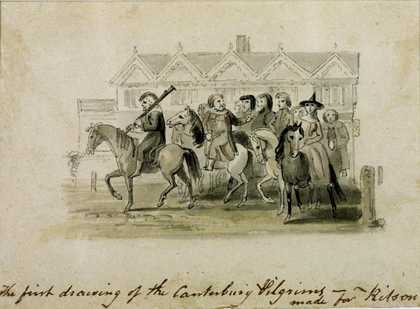 The first drawing of the Canterbury Pilgrims
made for Ritson